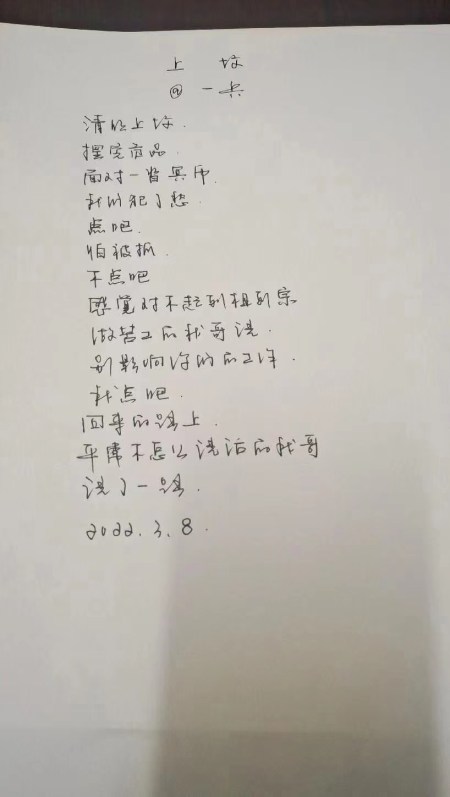 上 坟
@ 一兵
清明上坟.
摆完贡品.
面对一沓冥币.
我们犯了愁.
点吧.
怕被抓.
不点吧
感觉对不起列祖列宗
做苦工的我哥说.
别影响你们的工作.
我点吧.
回来的路上.
平常不怎么说话的我哥
说了一路.
2022.3.8.